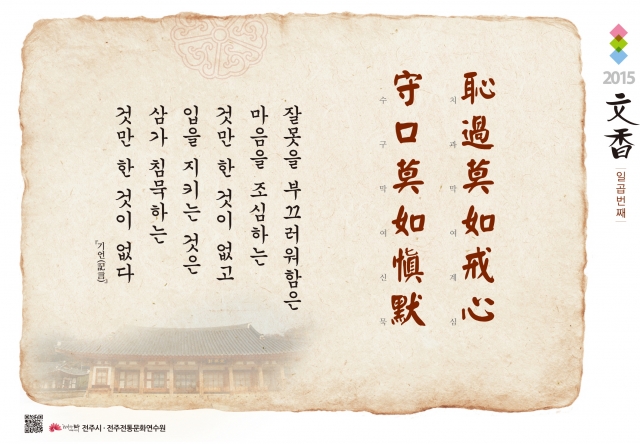 2015
文香
일곱번째
恥過莫如戒心
지과막여계심
守口莫如愼默
수구막여신묵
잘못을 부끄러워함은
마음을 조심하는
것만 한 것이 없고
입을 지키는 것은
삼가 침묵하는
것만 한 것이 없다
『기언(記言)』
전주시 · 전주전통문화연수원